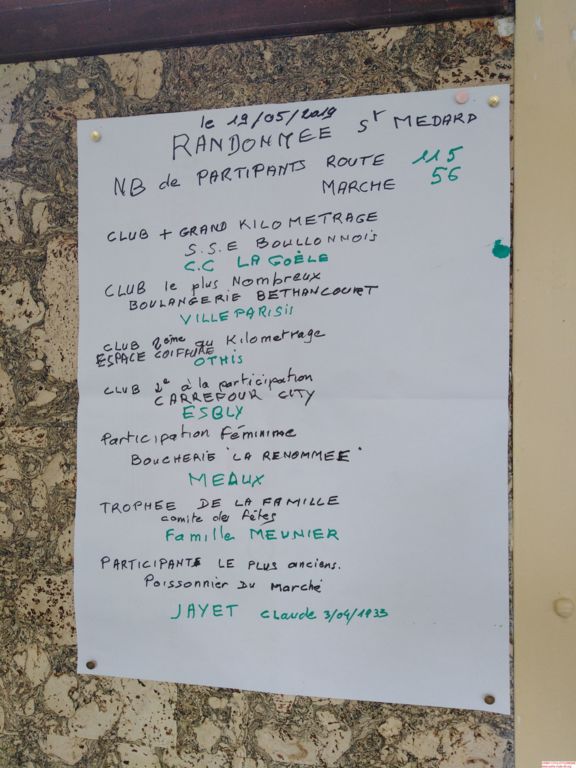 le 19/05/2019
RANDONNEE St MEDARD
NB de PARTIPANTS ROUTE 115
MARCHE 56
CLUB + GRAND KILOMETRAGE
S.S.E BOULLONNOIS
C.C LA GOËLE
CLUB le plus Nombreux
BOULANGERIE BETHANCOURT
VILLEPARISIS
CLUB 2ème au Kilometrage
ESPACE COIFFURE
OTHIS
CLUB 2e à la participation
CARREFOUR CITY
ESBLY
Participation Féminine
BOUCHERIE "LA RENOMMEE"
MEAUX
TROPHEE DE LA FAMILLE
comite des fêtes
Famille MEUNIER
PARTICIPANTS LE PLUS anciens.
Poissonnier Du Marché
JAYET Claude 3/04/1933